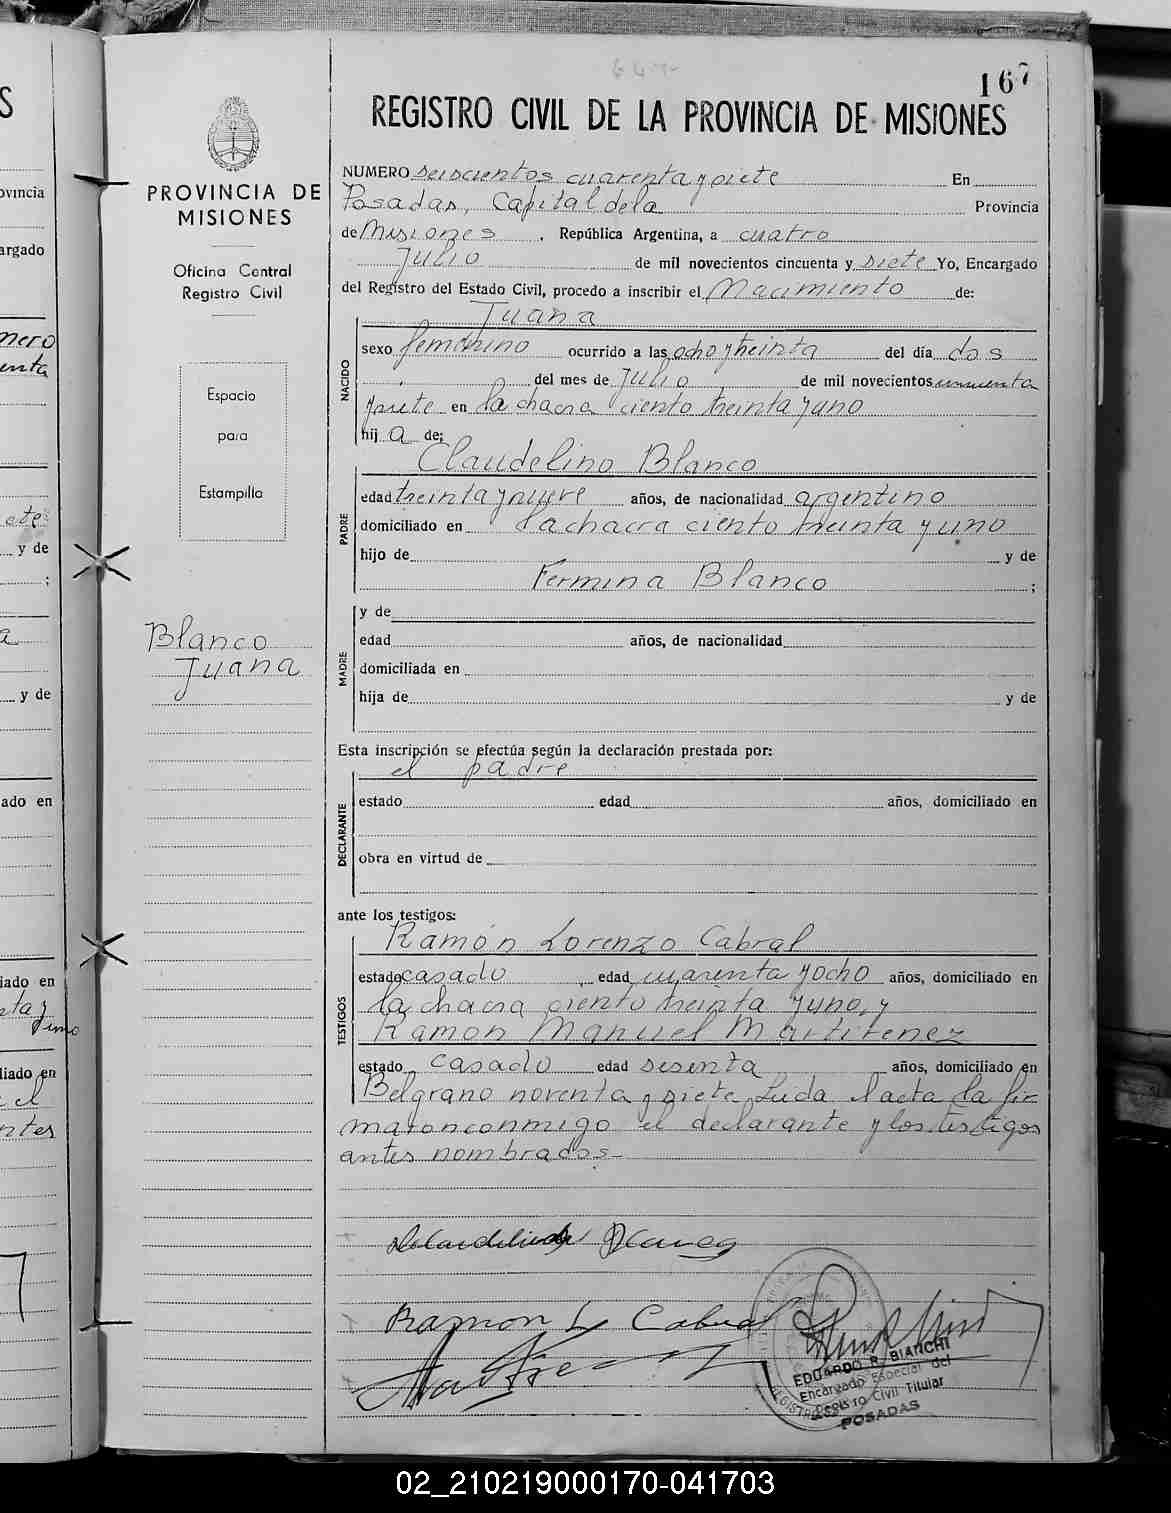 167
REGISTRO CIVIL DE LA PROVINCIA DE MISIONES
PROVINCIA DE
MISIONES
Oficina Central
Registro Civil
Espacio
para
Estampilla
Blanco
Juana
NUMERO seiscientos cuarenta y siete En
Posadas, Capital de la Provincia
de Misiones, República Argentina, a cuatro
Julio de mil novecientos cincuenta y siete Yo, Encargado
del Registro del Estado Civil, procedo a inscribir el Nacimiento de:
NACIDO
Juana
sexo femenino ocurrido a las ocho y treinta del día dos
del mes de Julio de mil novecientos cincuenta
y siete en la chacra ciento treinta y uno
hij a de:
PADRE
Claudelino Blanco
edad treinta y nueve años, de nacionalidad argentino
domiciliado en la chacra ciento treinta y uno
hijo de y de
Fermina Blanco ;
MADRE
y de
edad años, de nacionalidad
domiciliada en
hija de y de
Esta inscripción se efectúa según la declaración prestada por:
el padre
DECLARANTE
estado edad años, domiciliado en
obra en virtud de
ante los testigos:
TESTIGOS
Ramón Lorenzo Cabral
estado casado edad cuarenta y ocho años, domiciliado en
la chacra ciento treinta y uno, y
Ramon Manuel Martirenez
estado casado edad sesenta años, domiciliado en
Belgrano noventa y siete Leida el acta la fir
maron conmigo el declarante y los testigos
antes nombrados.
Ramon L Cabral
EDUARDO R. BIANCHI
Encargado Especial del
Registro Civil Titular
POSADAS
02_210219000170-041703